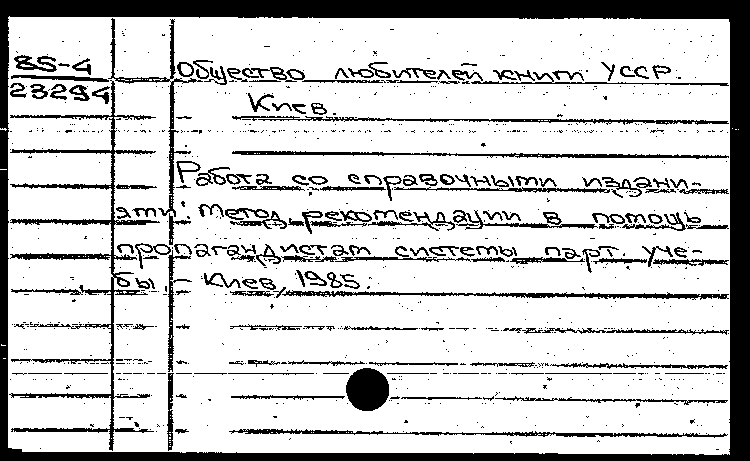 85-4
23294
Общество любителей книги УССР.
Киев.
Работа со справочными издани-
ями: Метод. рекомендации в помощь
пропагандистам системы парт. уче-
бы. – Киев, 1985.